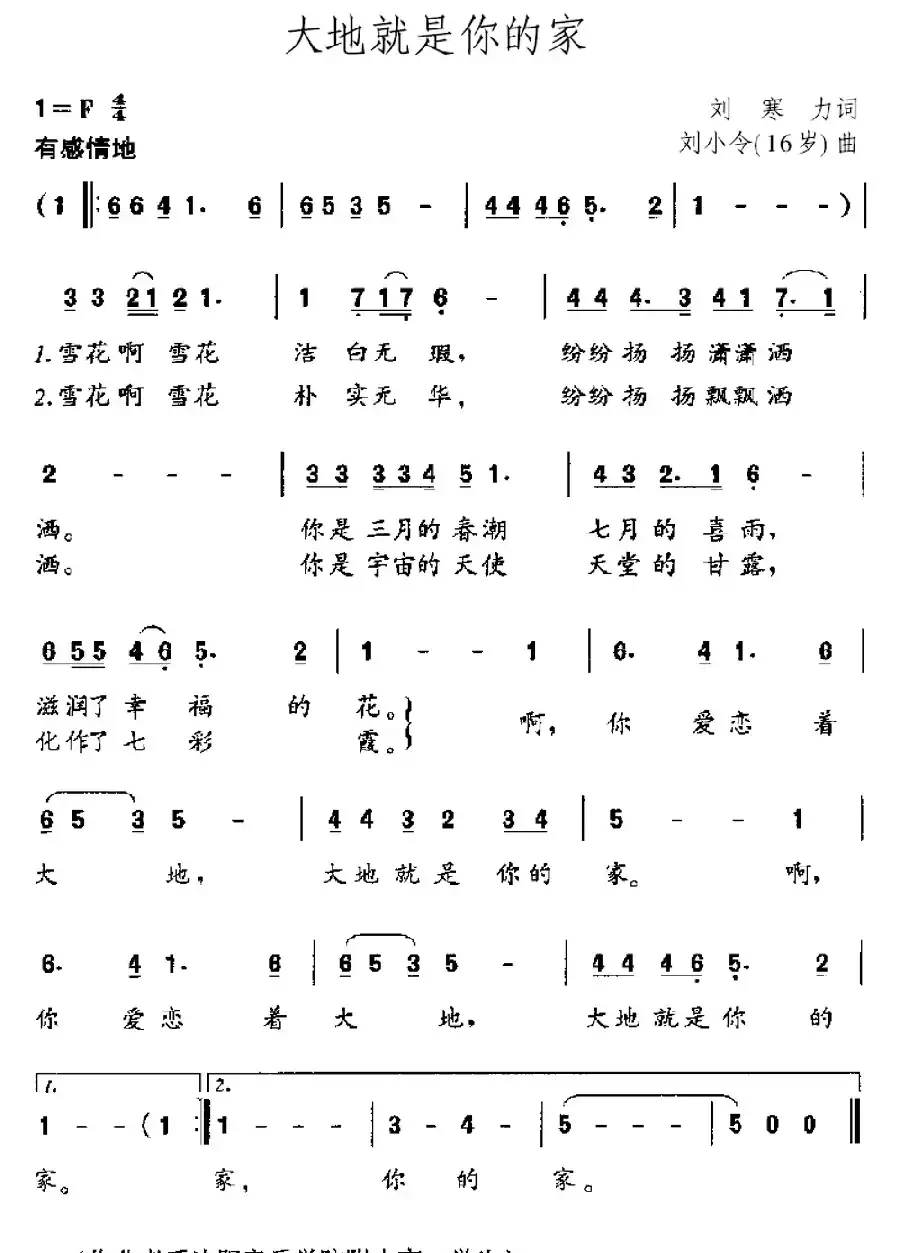 大地就是你的家
1=F 4/4
刘寒力词
有感情地
刘小令(16岁)曲
(1 ‖: 6 6 4 1. 6 | 6 5 3 5 - | 4 4 4 6 5. 2 | 1 - - - ) |
3 3 2 1 2 1. | 1 7 1 7 6 - | 4 4 4. 3 4 1 7. 1 |
1.雪花啊 雪花 洁白无瑕, 纷纷扬扬潇潇洒
2.雪花啊 雪花 朴实无华, 纷纷扬扬飘飘洒
2 - - - | 3 3 3 3 4 5 1. | 4 3 2. 1 6 - |
洒。 你是三月的春潮 七月的喜雨,
洒。 你是宇宙的天使 天堂的甘露,
6 5 5 4 6 5. 2 | 1 - - 1 | 6. 4 1. 6 |
滋润了幸福的花。 啊, 你爱恋着
化作了七彩霞。
6 5 3 5 - | 4 4 3 2 3 4 | 5 - - 1 |
大地, 大地就是你的家。 啊,
6. 4 1. 6 | 6 5 3 5 - | 4 4 4 6 5. 2 |
你爱恋着大地, 大地就是你的
1. 2.
1 - - (1 :‖ 1 - - - | 3 - 4 - | 5 - - - | 5 0 0 ‖
家。 家, 你的家。